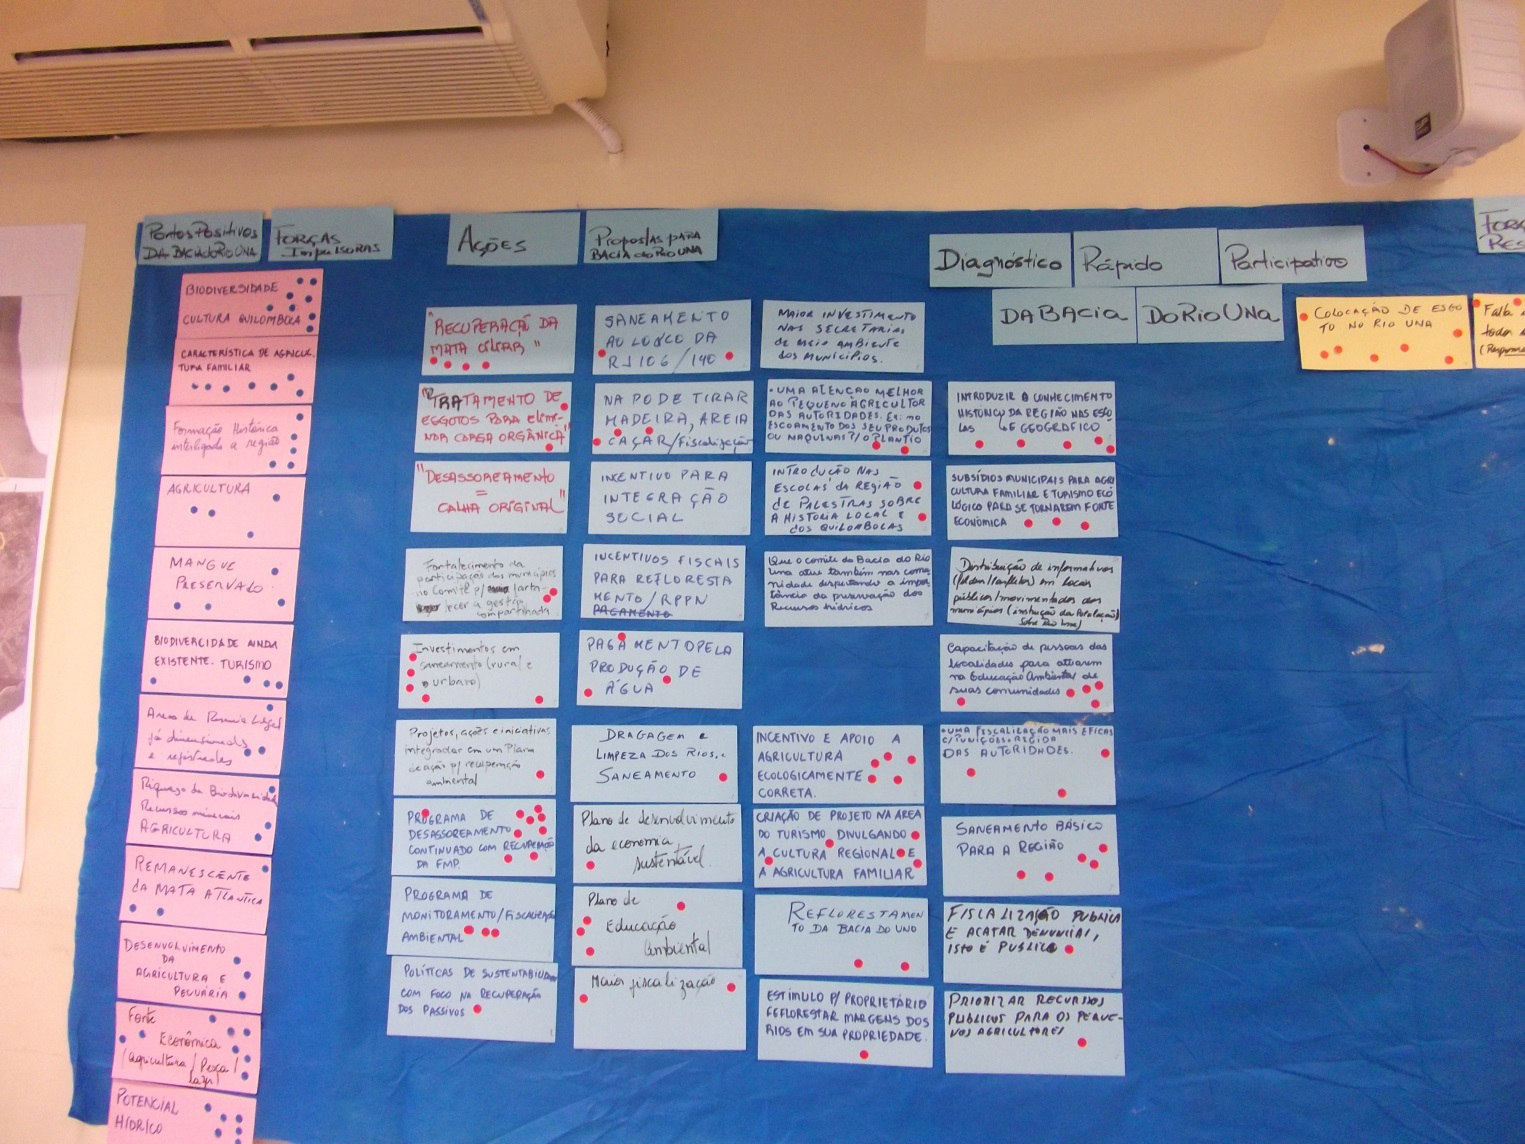 Pontos Positivos
DA BACIA do RIO UNA
FORÇAS
Impulsoras
AÇÕES
Propostas PARA
BACIA do RIO UNA
Diagnóstico
Rápido
Participativo
DA BACIA
DO RIO UNA
BIODIVERSIDADE
CULTURA QUILOMBOLA
CARACTERÍSTICA DE AGRICUL
TURA FAMILIAR
Formação Histórica
interligada a região
AGRICULTURA
MANGUE
PRESERVADO.
BIODIVERCIDADE AINDA
EXISTENTE. TURISMO
Áreas de Reserva Legal
já dimensionadas
e registradas
Riqueza da Biodiversidade
Recursos minerais
AGRICULTURA
REMANESCENTE
da MATA ATLÂNTICA
DESENVOLVIMENTO
DA
AGRICULTURA E
PECUÁRIA
Fonte
Econômica
(agricultura/Pesca/
lazer)
POTENCIAL
HÍDRICO
"RECUPERAÇÃO DA
MATA CILIAR"
"TRATAMENTO DE
ESGOTOS PARA ELIMI-
NDA CARGA ORGÂNICA"
"DESASSOREAMENTO
=
CALHA ORIGINAL"
Fortalecimento da
participação dos municípios
no Comitê p/ forta-
lecer a gestão
compartilhada
Investimentos em
saneamento (rural e
urbano)
Projetos, ações e iniciativas
integradas em um Plano
de ação p/ recuperação
ambiental
PROGRAMA DE
DESASSOREAMENTO
CONTINUADO COM RECUPERAÇÃO
DA FMP.
PROGRAMA DE
MONITORAMENTO/FISCALIZAÇÃO
AMBIENTAL
POLÍTICAS DE SUSTENTABILIDADE
COM FOCO NA RECUPERAÇÃO
DOS PASSIVOS
SANEAMENTO
AO LONGO DA
RJ 106/140
NA PODE TIRAR
MADEIRA, AREIA
CAÇAR/Fiscalização
INCENTIVO PARA
INTEGRAÇÃO
SOCIAL
INCENTIVOS FISCAIS
PARA REFLORESTA
MENTO/RPPN
PAGAMENTO
PAGAMENTO PELA
PRODUÇÃO DE
ÁGUA
DRAGAGEM e
LIMPEZA DOS RIOS..
SANEAMENTO
Plano de desenvolvimento
da economia
sustentável.
Plano de
Educação
Ambiental
Maior fiscalização
MAIOR INVESTIMENTO
NAS SECRETARIAS
de MEIO AMBIENTE
dos MUNICÍPIOS.
• UMA ATENÇÃO MELHOR
AO PEQUENO AGRICULTOR
DAS AUTORIDADES. EX: no
ESCOAMENTO DOS SEU PRODUTOS
OU MAQUINAS P/ O PLANTIO
INTRODUÇÃO NAS
ESCOLAS DA REGIÃO
de PALESTRAS SOBRE
A HISTORIA LOCAL E
dos QUILOMBOLAS
Que o comitê da Bacia do Rio
Una atue também nas comu
nidade despertando a impor
tância da preservação dos
Recursos hídricos
INCENTIVO E APOIO A
AGRICULTURA
ECOLOGICAMENTE
CORRETA.
CRIAÇÃO DE PROJETO NA AREA
DO TURISMO DIVULGANDO
A CULTURA REGIONAL E
A AGRICULTURA FAMILIAR
REFLORESTAMEN
TO DA BACIA DO UNO
ESTÍMULO P/ PROPRIETÁRIO
REFLORESTAR MARGENS DOS
RIOS EM SUA PROPRIEDADE.
INTRODUZIR O CONHECIMENTO
HISTÓRICO DA REGIÃO NAS ESCO
LAS E GEOGRÁFICO
SUBSÍDIOS MUNICIPAIS PARA AGRI
CULTURA FAMILIAR E TURISMO ECO
LÓGICO PARA SE TORNAREM FONTE
ECONÔMICA
Distribuição de informativos
(folders/panfletos) em locais
públicos/movimentados dos
municípios (instrução da População)
sobre Rio Una)
Capacitação de pessoas das
localidades para atuarem
na Educação Ambiental de
suas comunidades
• UMA FISCALIZAÇÃO MAIS EFICAS
DAS AUTORIDADES.
SANEAMENTO BÁSICO
PARA A REGIÃO
FISCALIZAÇÃO PUBLICA
E ACATAR DENUNCIAS,
ISTO É PUBLICA
PRIORIZAR RECURSOS
PÚBLICOS PARA OS PEQUE-
NOS AGRICULTORES
COLOCAÇÃO DE ESGO
TO NO RIO UNA
Falta
todos